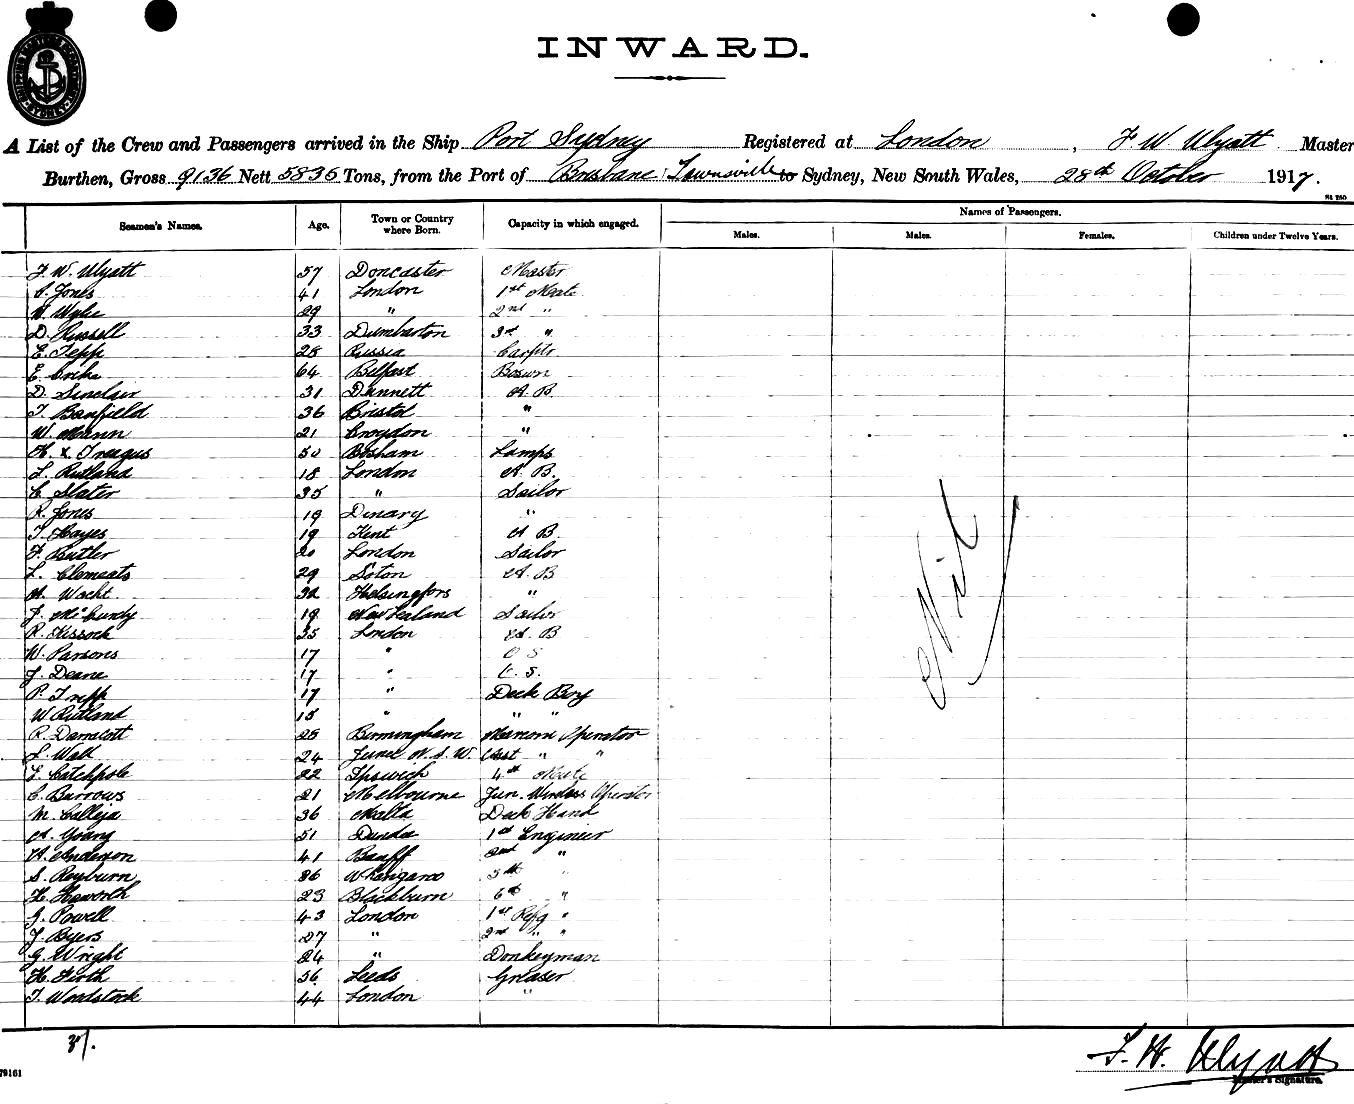 INWARD.
SYDNEY
A List of the Crew and Passengers arrived in the Ship Port Sydney Registered at London, F W Wyatt Master
Burthen, Gross 9136 Nett 5835 Tons, from the Port of Brisbane Townsville to Sydney, New South Wales, 28th October 1917.
Seamen's Names. Age. Town or Country where Born. Capacity in which engaged. Names of Passengers.
Males. Males. Females. Children under Twelve Years.
F. W. Wyatt 57 Doncaster Master
C. Jones 41 London 1st Mate
W. Wylie 29 " 2nd "
D. Russell 33 Dumbarton 3rd "
E. Tepp 28 Russia Carptr
E. 64 Belfast Bosun
D. Sinclair 31 Dunnett A. B.
T. Banfield 36 Bristol "
W. Mann 21 Croydon "
H. x Treagus 50 Bosham Lamps
L. Rutland 18 London A. B.
C. Slater 35 " Sailor
R. Jones 19 Dinary "
T. Hayes 19 Kent A B.
F. Butler 20 London Sailor
L. Clements 29 Soton A. B
A. Wacht 32 Helsingfors "
J. McCurdy 19 New Zealand Sailor
R. Kissock 35 London A. B
W. Parsons 17 " O S
J. Deane 17 " O. S.
P. Tripp 17 " Deck Boy
W Rutland 15 " " "
R. Darracott 28 Birmingham Marconi Operator
L. Wall 24 Junee N. S. W. Asst " "
E. Catchpole 22 Ipswich 4th Mate
C. Barrows 21 Melbourne Jun. Wireless Operator
M. Calleja 36 Malta Deck Hand
A. Young 51 Dundee 1st Engineer
A. Anderson 41 Banff 2nd "
S. Reyburn 26 Whangaroo 5th "
H. Haworth 23 Blackburn 6th "
G. Powell 43 London 1st Refg "
J. Byers 27 " 2nd " "
G. Wright 24 " Donkeyman
H. Firth 56 Leeds Greaser
T. Woodstock 44 London "
Nil
37.
F. W. Wyatt
Master's Signature.
79161